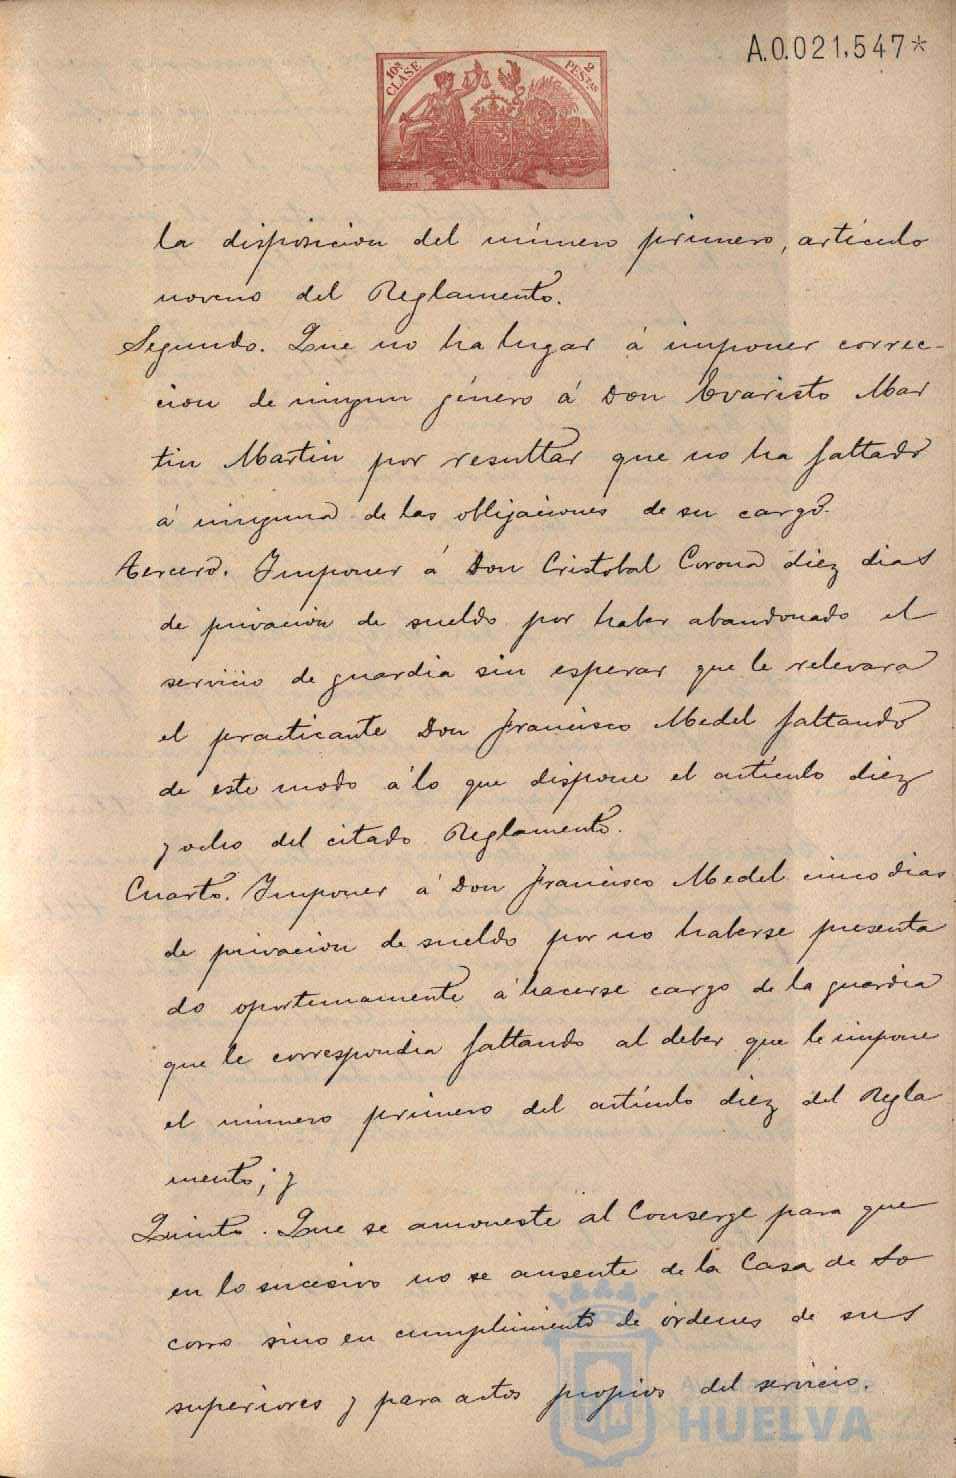 A.0.021,547*
10ª CLASE
2 PESETAS
la disposicion del número primero, artículo
noveno del Reglamento.
Segundo. Que no ha lugar á imponer correc-
cion de ningun género á Don Evaristo Mar
tin Martin por resultar que no ha faltado
á ninguna de las obligaciones de su cargo.
Tercero. Imponer á Don Cristobal Corona diez dias
de privacion de sueldo por haber abandonado el
servicio de guardia sin esperar que le relevara
el practicante Don Francisco Medel faltando
de este modo á lo que dispone el artículo diez
y ocho del citado Reglamento.
Cuarto. Imponer á Don Francisco Medel cinco dias
de privacion de sueldo por no haberse presenta
do oportunamente á hacerse cargo de la guardia
que le correspondia faltando al deber que le impone
el número primero del artículo diez del Regla
mento; y
Quinto. Que se amoneste al Conserge para que
en lo sucesivo no se ausente de la Casa de So
corro sino en cumplimiento de órdenes de sus
superiores y para actos propios del servicio.
Ayuntamiento de
HUELVA